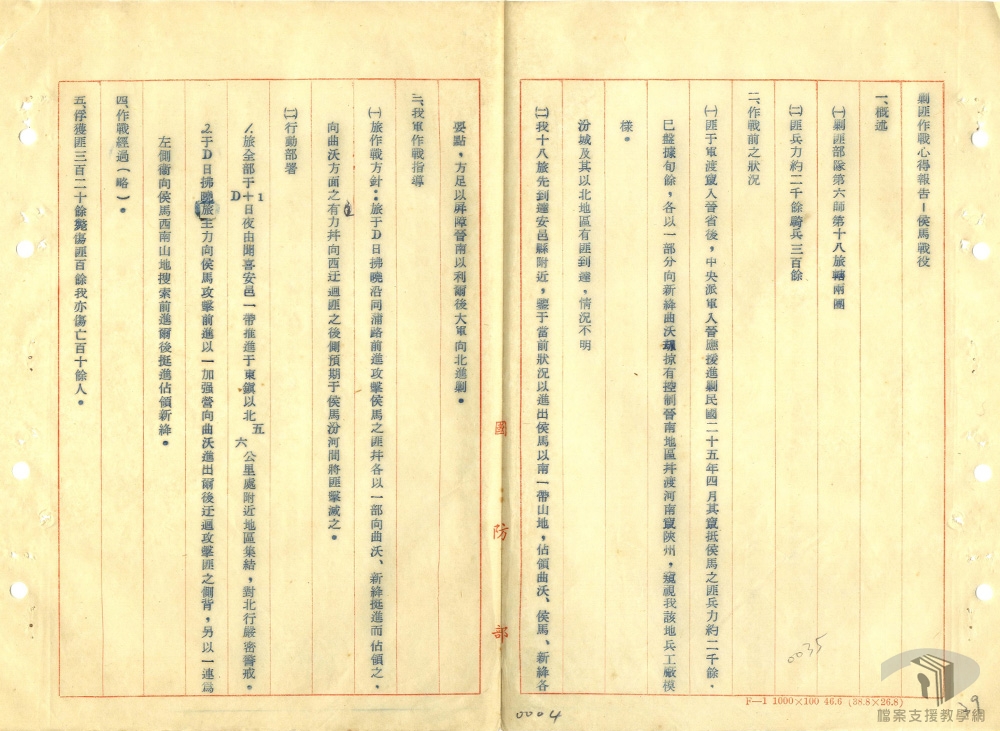 剿匪作戰心得報告-侯馬戰役
一、概述
㈠剿匪部隊第六師第十八旅轄兩團
㈡匪兵力約二千餘騎兵三百餘
二、作戰前之狀況
㈠匪于軍渡竄入晉省後，中央派軍入晉應援進剿民國二十五年四月其竄抵侯馬之匪兵力約二千餘，
已盤據旬餘，各以一部分向新絳曲沃掠有控制晉南地區幷渡河南竄陝州，窺視我該地兵工廠模
樣。
汾城及其以北地區有匪到達，情況不明
㈡我十八旅先到達安邑縣附近，鑒于當前狀況以進出侯馬以南一帶山地，佔領曲沃、侯馬、新絳各
要點，方足以屏障晉南以利爾後大軍向北進剿。
三、我軍作戰指導
㈠旅作戰方針：旅于D日拂曉沿同浦路前進攻擊侯馬之匪幷各以一部向曲沃、新絳挺進而佔領之，
向曲沃方面之有力幷向西迂迴匪之後側預期于侯馬汾河間將匪擊滅之。
㈡行動部署
1.旅全部于D+1日夜由聞喜安邑一帶推進于東鎭以北五六公里處附近地區集結，對北行嚴密警戒。
2.于D日拂曉旅主力向侯馬攻擊前進以一加强營向曲沃進出爾後迂迴攻擊匪之側背，另以一連爲
左側衞向侯馬西南山地搜索前進爾後挺進佔領新絳。
四、作戰經過（略）。
五、俘獲匪三百二十餘斃傷匪百餘我亦傷亡百十餘人。
國防部
0035
0004
F—1 1000×100 46.6 (38.8×26.8)
檔案支援教學網